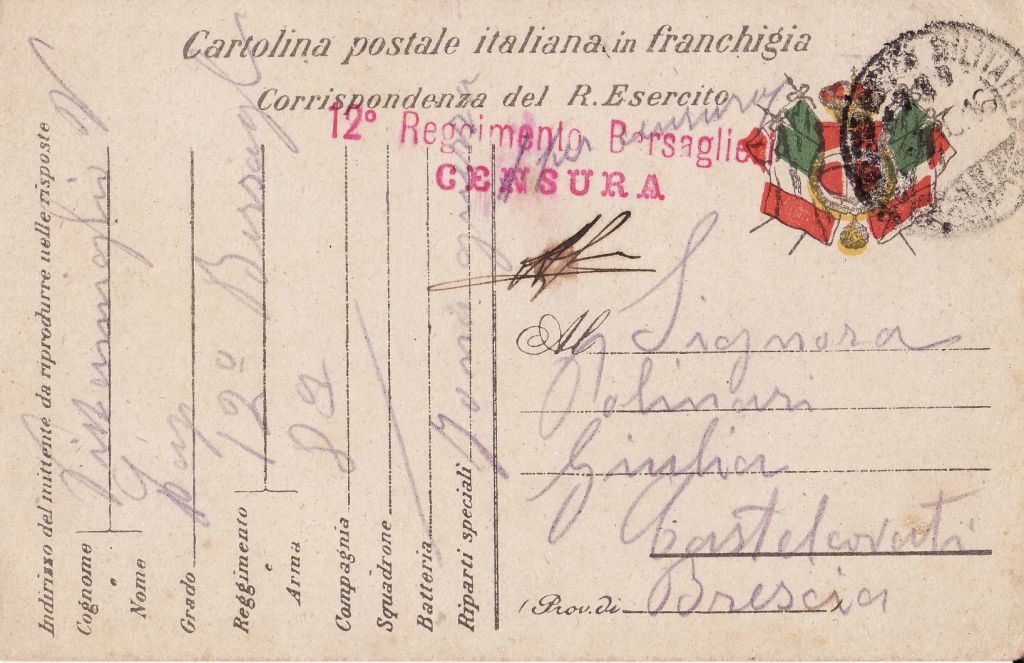 Cartolina postale italiana in franchigia
Corrispondenza del R. Esercito
12° Reggimento Bersaglieri
CENSURA
per censura
MILITARE
Al Signora
Polinari
Giulia
Castelcovati
(Prov. di Brescia)
Indirizzo del mittente da riprodurre nelle risposte
Cognome e Nome
Grado
Reggimento e Arma 12° Bersagl
Compagnia 89
Squadrone
Batteria
Riparti speciali Zona guerra